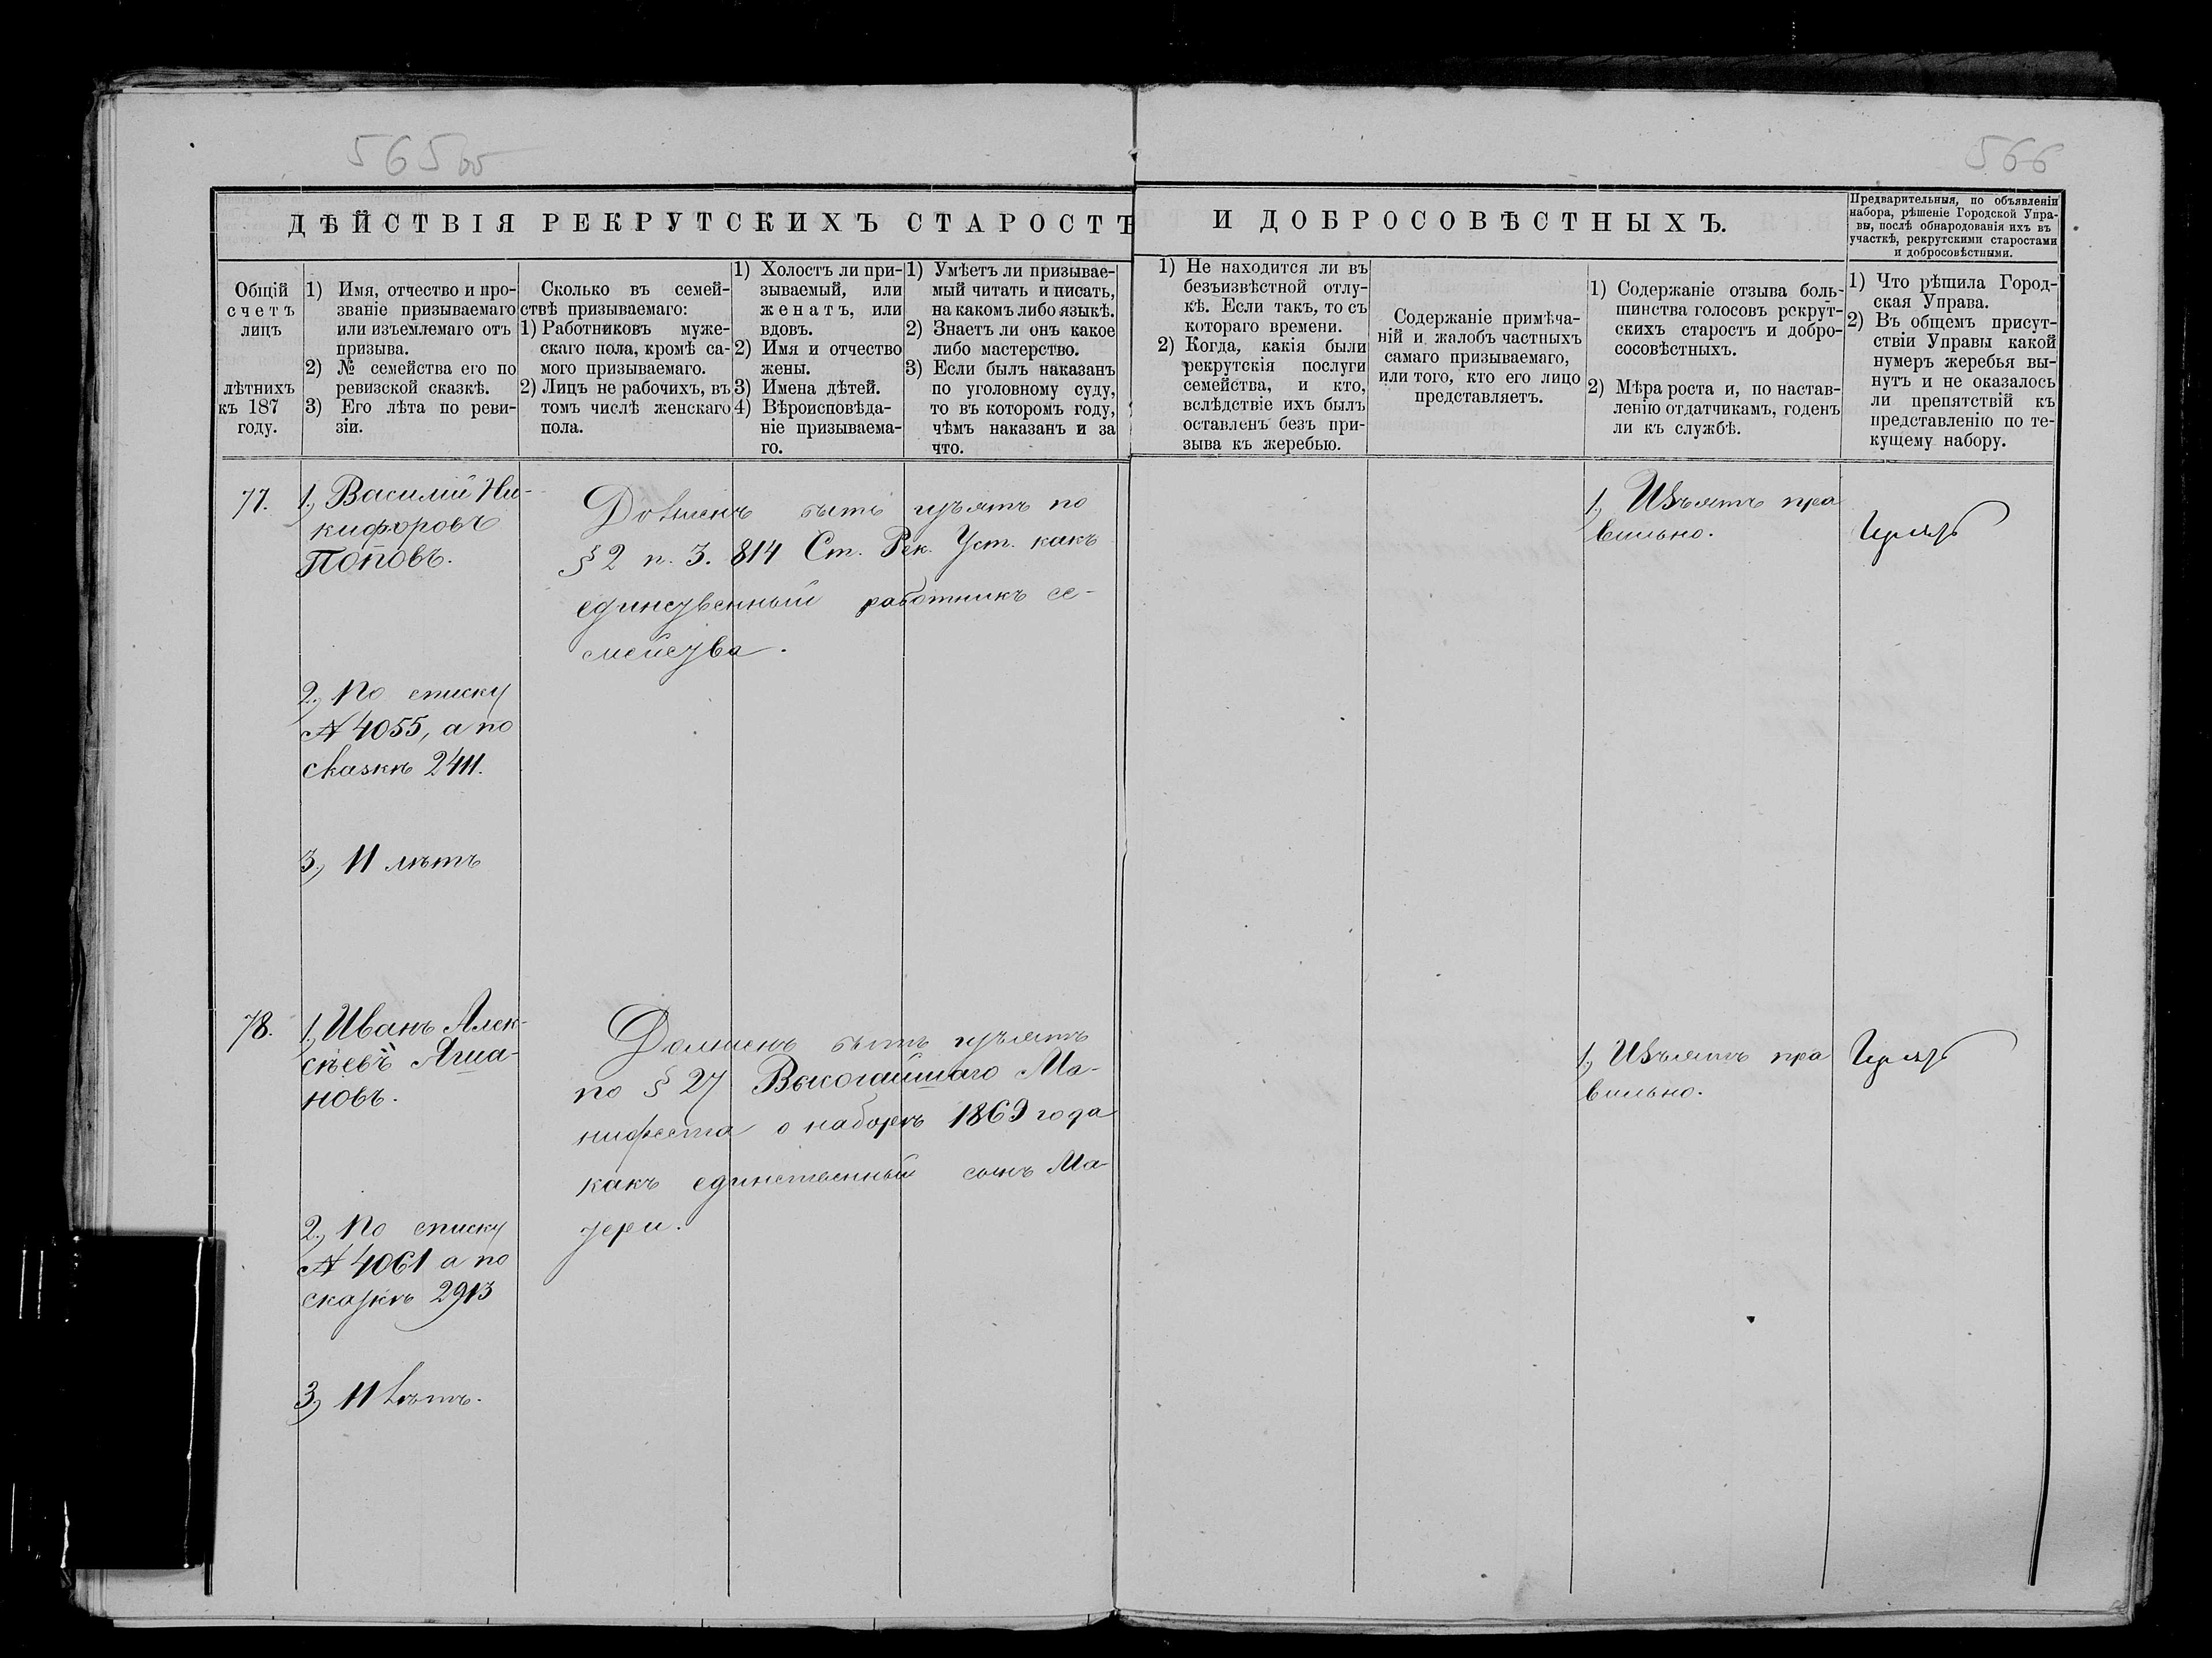 565об
566
ДѢЙСТВІЯ РЕКРУТСКИХЪ СТАРОСТЪ
И ДОБРОСОВѢСТНЫХЪ.
Предварительныя, по объявленіи
набора, рѣшеніе Городской Упра-
вы, послѣ обнародованія ихъ въ
участкѣ, рекрутскими старостами
и добросовѣстными.
Общій
счетъ
лицъ
лѣтнихъ
къ 187
году.
1) Имя, отчество и про-
званіе призываемаго
или изъемлемаго отъ
призыва.
2) № семейства его по
ревизской сказкѣ.
3) Его лѣта по реви-
зіи.
Сколько въ семей-
ствѣ призываемаго:
1) Работниковъ муже-
скаго пола, кромѣ са-
мого призываемаго.
2) Лицъ не рабочихъ, въ
томъ числѣ женскаго
пола.
1) Холостъ ли при-
зываемый, или
женатъ, или
вдовъ.
2) Имя и отчество
жены.
3) Имена дѣтей.
4) Вѣроисповѣда-
ніе призываема-
го.
1) Умѣетъ ли призывае-
мый читать и писать,
на какомъ либо языкѣ.
2) Знаетъ ли онъ какое
либо мастерство.
3) Если былъ наказанъ
по уголовному суду,
то въ которомъ году,
чѣмъ наказанъ и за
что.
1) Не находится ли въ
безъизвѣстной отлу-
кѣ. Если такъ, то съ
котораго времени.
2) Когда, какія были
рекрутскія послуги
семейства, и кто,
вслѣдствіе ихъ былъ
оставленъ безъ при-
зыва къ жеребью.
Содержаніе примѣча-
ній и жалобъ частныхъ
самаго призываемаго,
или того, кто его лицо
представляетъ.
1) Содержаніе отзыва боль-
шинства голосовъ рекрут-
скихъ старостъ и добро-
сосовѣстныхъ.
2) Мѣра роста и, по настав-
ленію отдатчикамъ, годенъ
ли къ службѣ.
1) Что рѣшила Город-
ская Управа.
2) Въ общемъ присут-
ствіи Управы какой
нумеръ жеребья вы-
нутъ и не оказалось
ли препятствій къ
представленію по те-
кущему набору.
77.
1) Василій Ни-
кифоровъ
Поповъ.
2) По списку
№ 4055, а по
сказкѣ 2411.
3) 11 лѣтъ
Долженъ быть изъятъ по
§ 2 п. 3. 814 Ст. Рек. Уст. какъ
единственный работникъ се-
мейства.
1) Изъятъ пра
вильно.
Изъятъ
78.
1) Иванъ Алек-
сѣевъ
новъ.
2) По списку
№ 4061 а по
сказкѣ 2913
3) 11 лѣтъ.
Долженъ быть изъятъ
по § 27 Высочайшаго Ма-
нифеста о наборѣ 1869 года
какъ единственный сынъ Ма-
тери.
1) Изъятъ пра
вильно.
Изъятъ